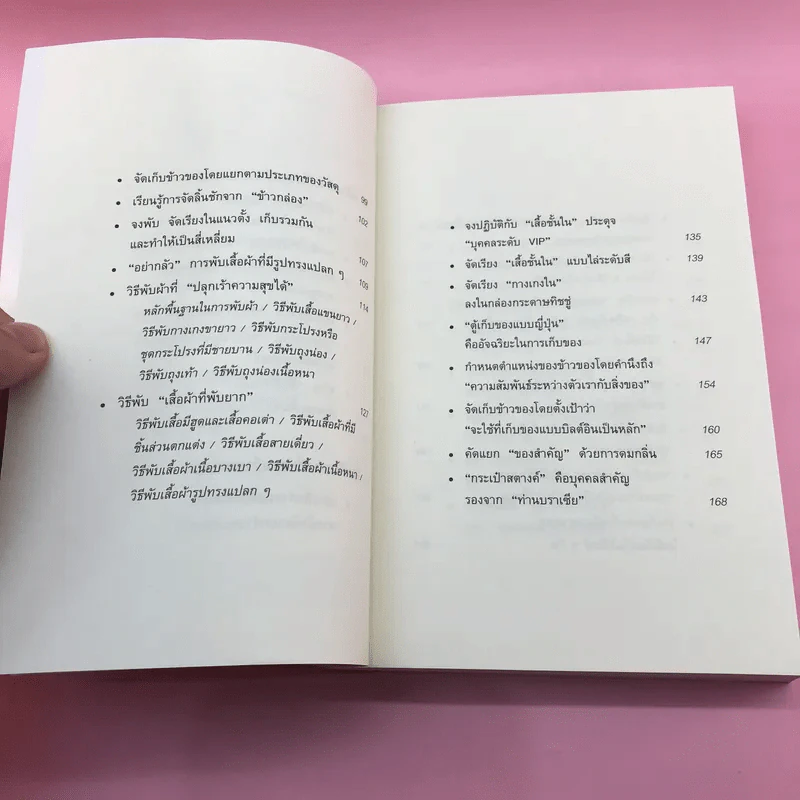 • จัดเก็บข้าวของโดยแยกตามประเภทของวัสดุ 99
• เรียนรู้การจัดลิ้นชักจาก “ข้าวกล่อง” 102
• จงพับ จัดเรียงในแนวตั้ง เก็บรวมกัน
และทำให้เป็นสี่เหลี่ยม 107
• “อย่ากลัว” การพับเสื้อผ้าที่มีรูปทรงแปลก ๆ 109
• วิธีพับผ้าที่ “ปลุกเร้าความสุขได้” 114
หลักพื้นฐานในการพับผ้า / วิธีพับเสื้อแขนยาว /
วิธีพับกางเกงขายาว / วิธีพับกระโปรงหรือ
ชุดกระโปรงที่มีชายบาน / วิธีพับถุงน่อง /
วิธีพับถุงเท้า / วิธีพับถุงน่องเนื้อหนา
• วิธีพับ “เสื้อผ้าที่พับยาก” 127
วิธีพับเสื้อมีฮูดและเสื้อคอเต่า / วิธีพับเสื้อผ้าที่มี
ชิ้นส่วนตกแต่ง / วิธีพับเสื้อสายเดี่ยว /
วิธีพับเสื้อผ้าเนื้อบางเบา / วิธีพับเสื้อผ้าเนื้อหนา /
วิธีพับเสื้อผ้ารูปทรงแปลก ๆ
• จงปฏิบัติกับ “เสื้อชั้นใน” ประดุจ
“บุคคลระดับ VIP” 135
• จัดเรียง “เสื้อชั้นใน” แบบไล่ระดับสี 139
• จัดเรียง “กางเกงใน”
ลงในกล่องกระดาษทิชชู่ 143
• “ตู้เก็บของแบบญี่ปุ่น”
คืออัจฉริยะในการเก็บของ 147
• กำหนดตำแหน่งของข้าวของโดยคำนึงถึง
“ความสัมพันธ์ระหว่างตัวเรากับสิ่งของ” 154
• จัดเก็บข้าวของโดยตั้งเป้าว่า
“จะใช้ที่เก็บของแบบบิลต์อินเป็นหลัก” 160
• คัดแยก “ของสำคัญ” ด้วยการดมกลิ่น 165
• “กระเป๋าสตางค์” คือบุคคลสำคัญ
รองจาก “ท่านบราเซีย” 168